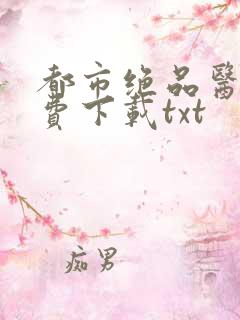 都市绝品醫
費下載txt
痴男